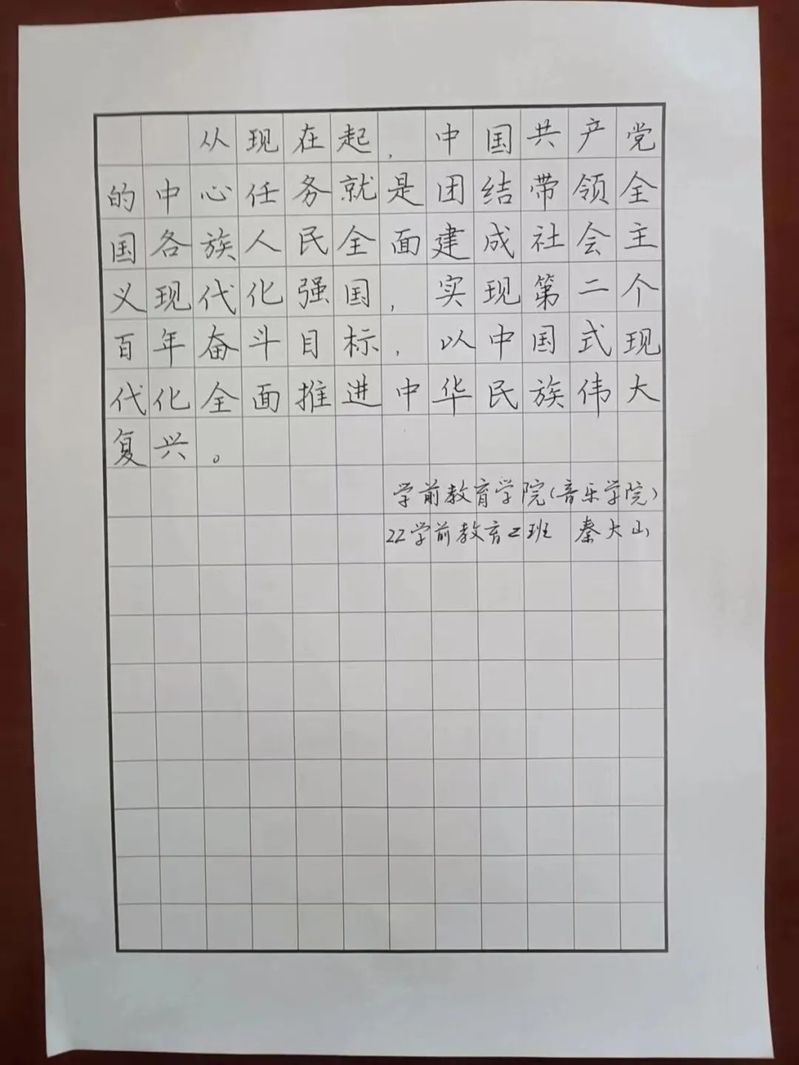 从现在起，中国共产党
的中心任务就是团结带领全
国各族人民全面建成社会主
义现代化强国，实现第二个
百年奋斗目标，以中国式现
代化全面推进中华民族伟大
复兴。
学前教育学院(音乐学院)
22学前教育2班 秦大山